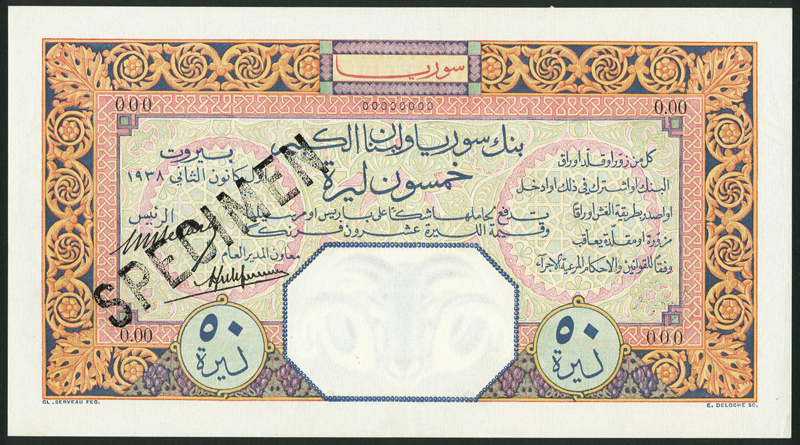 سوريا
000
00000000
0.00
بنك سوريا ولبنان الكبير
خمسون ليرة
بيروت
اول كانون الثاني ١٩٣٨
تدفع لحاملها شكًا على باريس او مرسيليا
وقيمة الليرة عشرون فرنكًا
الرئيس
معاون المدير العام
كل من زوّر او قلّد اوراق
البنك او اشترك في ذلك او ادخل
او اصدر بطريقة الغش اوراقًا
مزورة او مقلدة يعاقب
وفقًا للقوانين والاحكام المرعية الاجراء
SPECIMEN
0.00
000
٥٠
ليرة
٥٠
ليرة
CL. SERVEAU FEC.
E. DELOCHE SC.